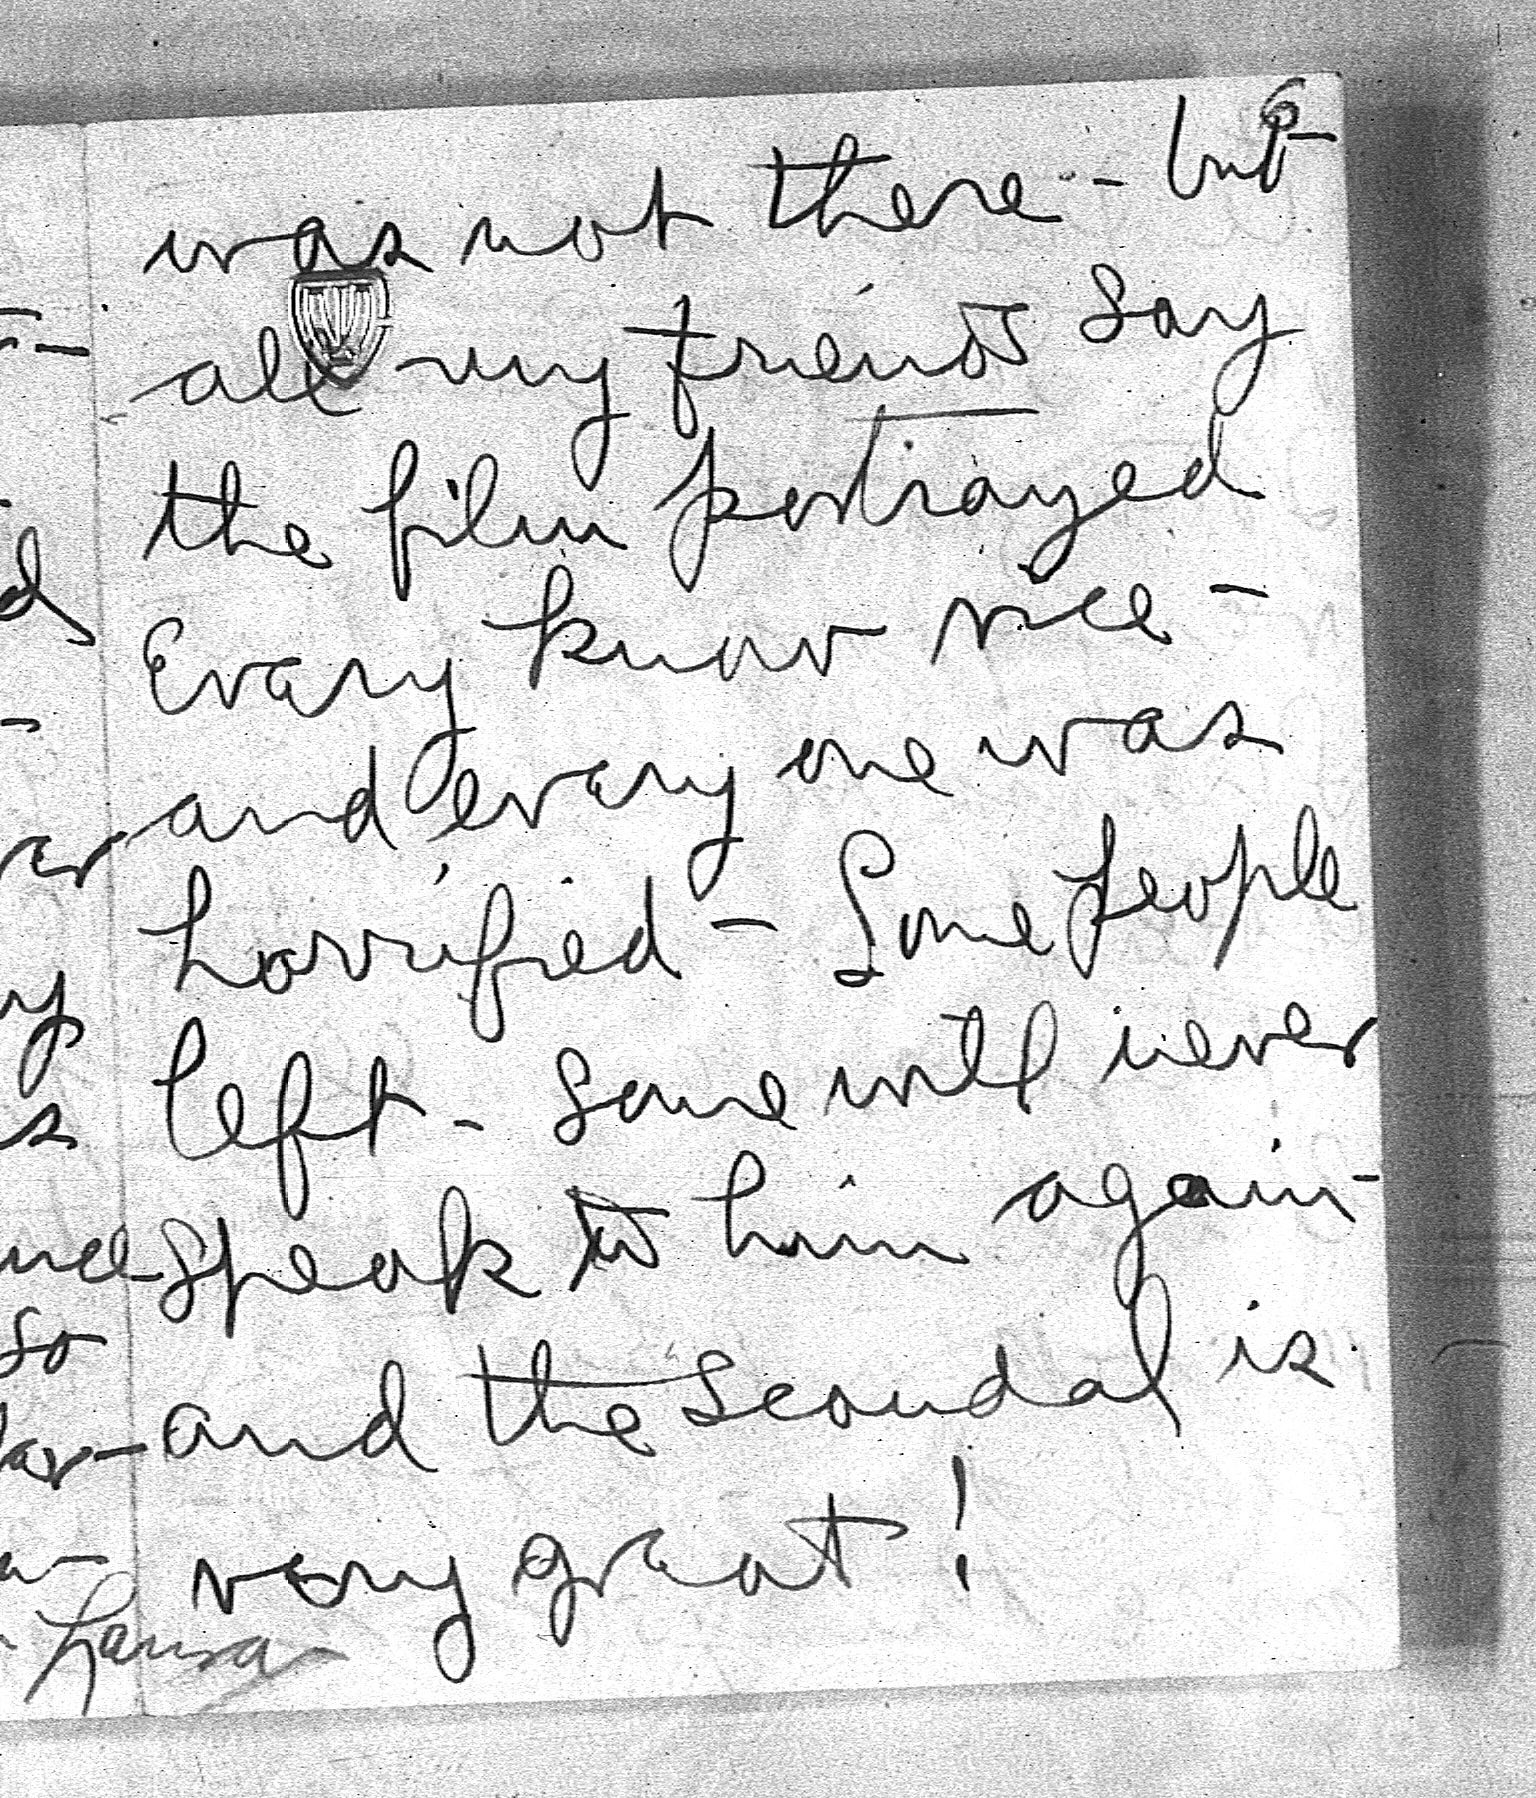 6
was not there -- but
all my friends say
the film portrayed
Every know vice -
and every one was
horrified - Some people
left - Some will never
speak to him again -
and the scandal is
very great!